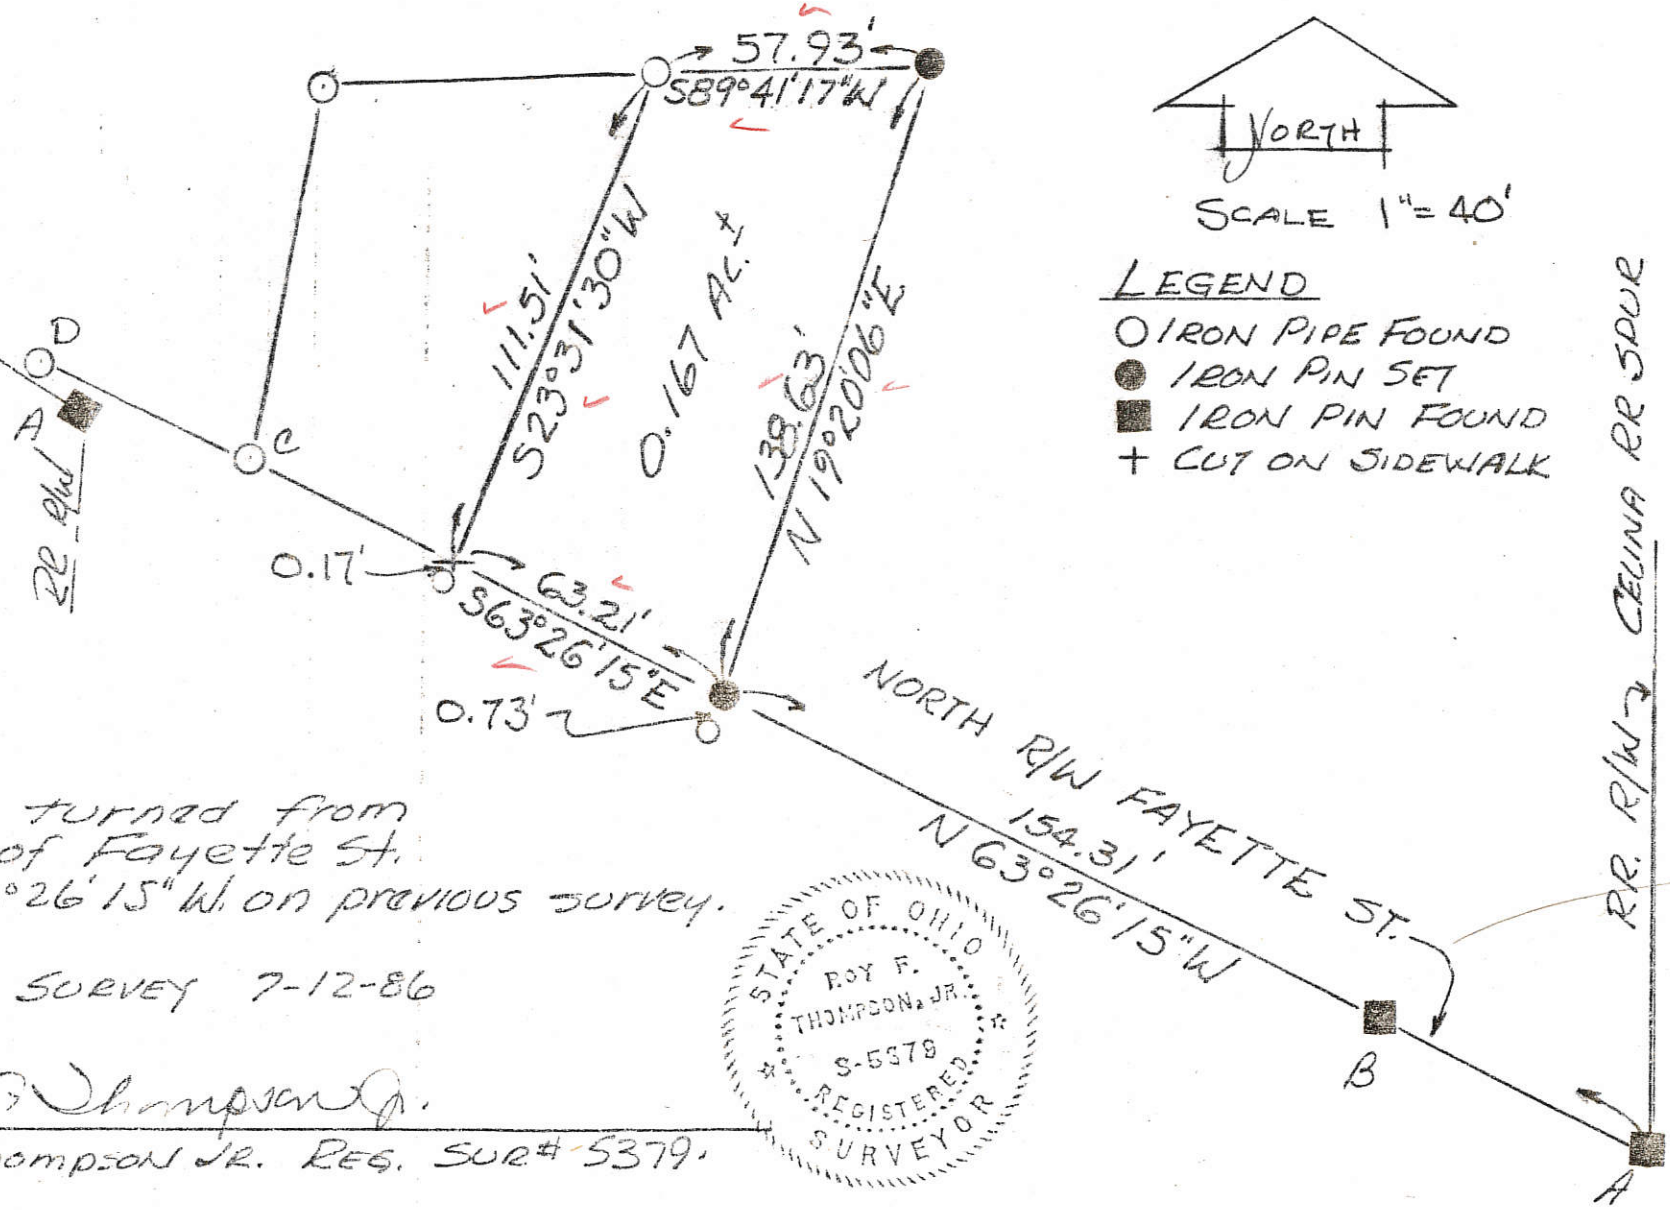 57.93'
S89°41'17"W
NORTH
SCALE 1"=40'
LEGEND
IRON PIPE FOUND
IRON PIN SET
IRON PIN FOUND
+ CUT ON SIDEWALK
111.51'
S23°31'30"W
0.167 AC.±
138.63'
N 19°20'06"E
D
A
C
RR R/W
0.17'
63.21'
S63°26'15"E
0.73'
NORTH R/W FAYETTE ST.
154.31'
N 63°26'15"W
RR. R/W CELINA RR SPUR
B
A
turned from
of Fayette St.
°26'15"W. on previous survey.
SURVEY 7-12-86
Thompson Jr.
ompson JR. REG. SUR# 5379.
STATE OF OHIO
ROY F.
THOMPSON, JR.
S-5379
REGISTERED
SURVEYOR